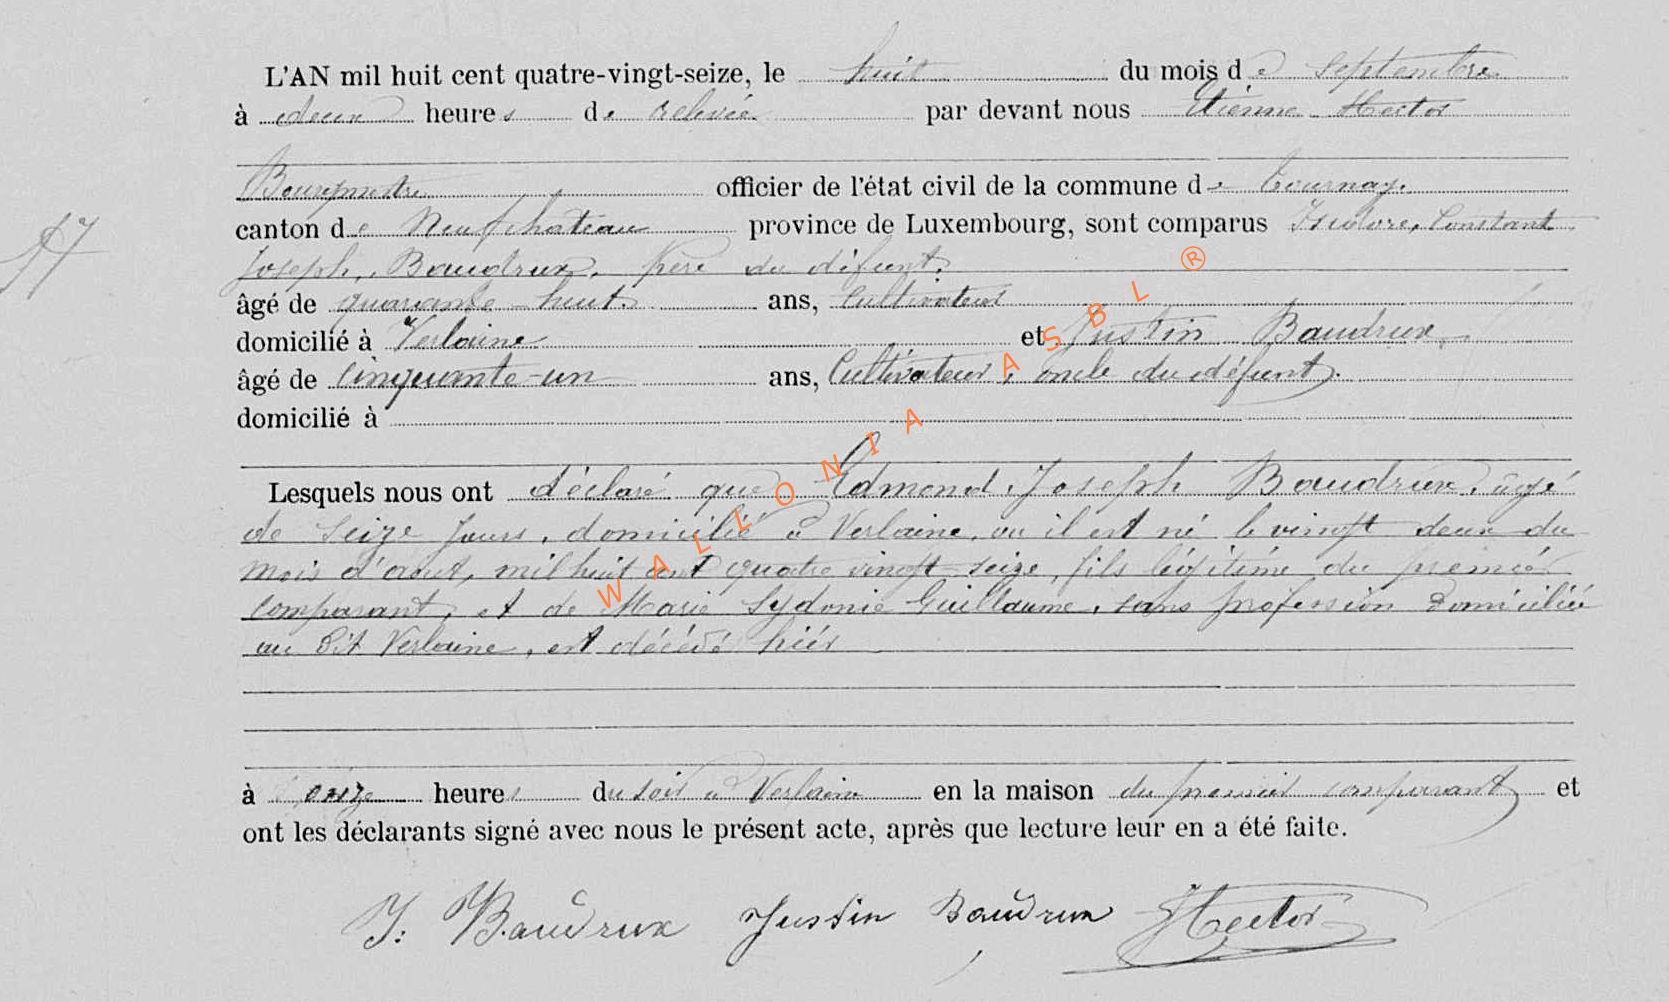 L'AN mil huit cent quatre-vingt-seize, le huit du mois de Septembre
à deux heures de relevée par devant nous Etienne Hector
Bourgmestre officier de l'état civil de la commune de Tournay.
canton de Neufchâteau province de Luxembourg, sont comparus Isidore, Constant
17
Joseph, Baudrux, père du défunt.
âgé de quarante-huit ans, Cultivateur
domicilié à Verlaine et Justin Baudrux,
âgé de Cinquante-un ans, Cultivateur, oncle du défunt.
domicilié à
Lesquels nous ont déclaré que Edmond, Joseph Baudrux, âgé
de Seize Jours, domicilié à Verlaine, ou il est né le vingt deux du
mois d'aout, mil huit cent quatre vingt seize, fils légitime du premier
comparant, et de Marie Sydonie Guillaume, sans profession Domiciliée
au Dit Verlaine, est décédé hier
à onze heures du soir à Verlaine en la maison du premier comparant et
ont les déclarants signé avec nous le présent acte, après que lecture leur en a été faite.
J: Baudrux Justin Baudrux Hector
WALLONIA ASBL ®